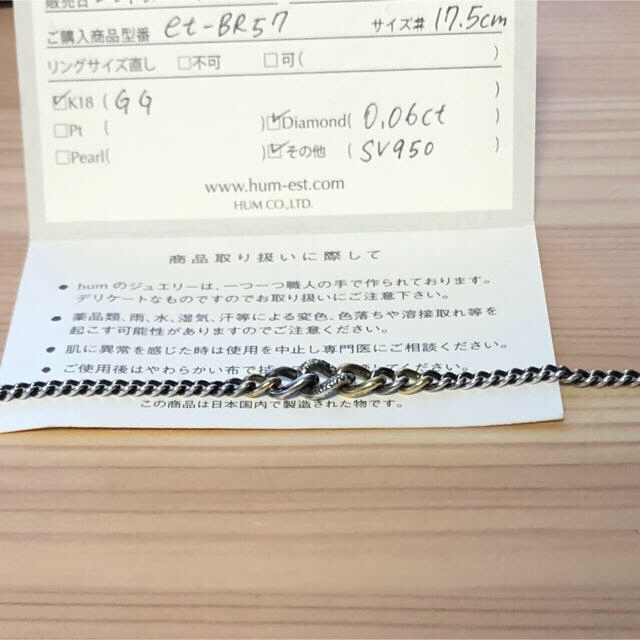 ご購入商品型番 et-BR57 サイズ# 17.5cm
リングサイズ直し □不可 □可( )
☑K18 ( GG )
□Pt ( ) ☑Diamond( 0.06ct )
□Pearl( ) ☑その他 ( SV950 )
www.hum-est.com
HUM CO.,LTD.
商品取り扱いに際して
● humのジュエリーは、一つ一つ職人の手で作られております。
デリケートなものですのでお取り扱いにご注意下さい。
● 薬品類、雨、水、湿気、汗等による変色、色落ちや溶接取れ等を
起こす可能性がありますのでご注意ください。
● 肌に異常を感じた時は使用を中止し専門医にご相談ください。
● ご使用後はやわらかい布で拭 てください。
この商品は日本国内で製造された物です。